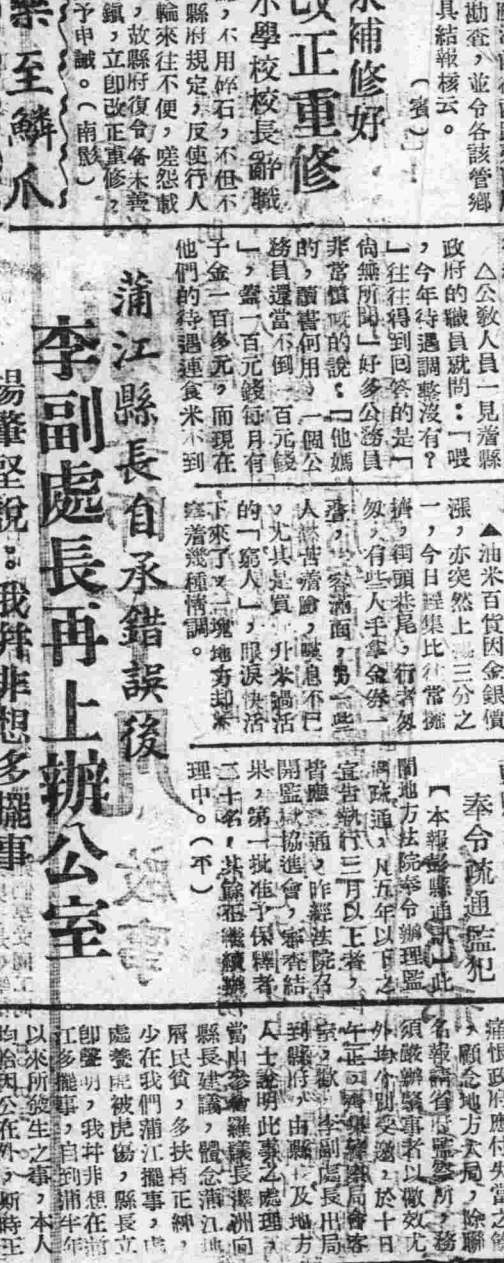 勘查，並令各該管鄉
具結報核云。
（賓）
補修好
改正重修
小學校校長辭職
，不用碎石，不但不
縣府規定，反使行人
輪來往不便，嗟怨載
，故縣府復令各未善
鎮，立卽改正重修，
予申誡。（南影）
至鱗爪
△公教人員一見着縣
政府的職員就問：「喂
，今年待遇調整沒有？
」往往得到回答的是「
尙無所聞」好多公務員
非常憤慨的說：「他媽
的，讀書何用，一個公
務員還當不倒一百元錢
」，蓋一百元錢每月有
子金一百多元，而現在
他們的待遇連食米不到
▲油米百貨因金銀價
漲，亦突然上漲三分之
一，今日逢集比往常擁
擠，街頭巷尾，行者匆
匆，有些人手拿金券一
，容滿面，另一些
人愁苦着臉，嘆息不已
，尤其是買一升米過活
的「窮人」，眼淚快活
下來了，一塊地方却
着幾種情調。
奉令疏通監犯
【本報彭縣通訊】此
間地方法院奉令辦理監
疏通，凡五年以下之
宣告執行三月以上者，
皆應疏通，昨經法院召
開監獄協進會，審查結
果，第一批准予保釋者
二十名，其餘在繼續辦
理中。（不）
蒲江縣長自承錯誤後
李副處長再上辦公室
楊肇堅說：我幷非想多擺事
痛恨政府應付失當之
，顧念地方大局，除聯
名報請省府監察所，務
須嚴辦緊事者以儆效尤
外均分別受邀，於十日
午正，齊集警察局會客
室，歡李副處長出局
到縣府，由縣府及地方
人士說明此事之處理，
當由參會羅議長澤洲向
縣長建議，體念蒲江地
屑民貧，多扶持正紳，
少在我們蒲江擺事，
處養虎被虎傷，縣長立
卽聲明，我幷非想在蒲
江多擺事，自到蒲半年
以來所發生之事，本人
均恰因公在外，斯時王